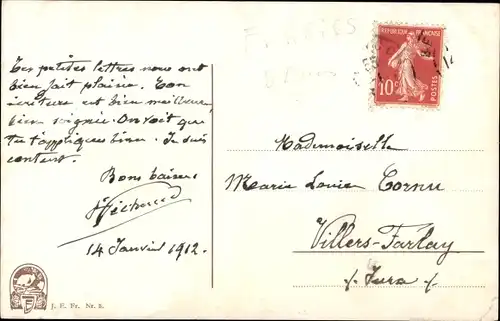 Tes petites lettres nous ont
bien fait plaisir. Ton
écriture est bien meilleure,
bien soignée. On voit que
tu t'appliques bien. Je suis
content.
Bons baisers
14 Janvier 1912.
J. E. Fr. Nr. 3.
REPUBLIQUE FRANÇAISE
10c
POSTES
Mademoiselle
Marie Louise Cornu
Villers-Farlay
Jura